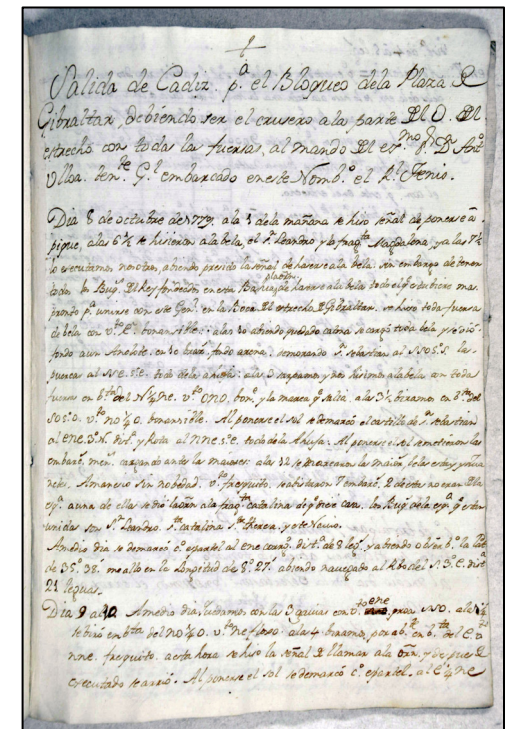 Salida de Cadiz. pª el Bloqueo dela Plaza D
Gibraltar, debiendo ser el crusero ala parte Del O. Del
estrecho con todas las fuersas, al mando Del exmo Sr. Dn Antº
Ulloa. tente. Gl. embarcado eneste Nombº el Rl. Fenis.
Dia 8 de octubre de 1779, ala de la mañana se hiso señal de ponerse a
pique, alas 6½ se hisieron ala bela, el Sn Leandro y la fragta Magdalena, y alas 7½
lo executamos nosotros, abiendo presido la señal de haserse ala bela. sin embargo de tener
todos los Buqs. Del Rey fondeados en esta Baia, de haserse ala bela todo el que estubiere mas
pronto pª unirse con este Genl. en la Boca Del estrecho D Gibraltar. se hiso toda fuersa
de bela con vto E. bonansible: alas 10 abiendo quedado calma se cargó toda bela y se dió
fondo aun Anclote. en 10 brazs. fondo arena, demorando Sn Sebastian al SSO 5º S. las
puercas al NE. alas 3 zarpamos, y nos hisimos ala bela con toda
fuersa en bta del N¼NE. vto ONO, bone. y la marea qe. salia. alas 3½ biramos en bta del
SO 5º O. vto NO¼O. bonansible. Al ponerse el sol se demarcó el castillo de Sn Sebastian
al ENE 3º N. y Rota al NNE 5º E. toda de la Abuja: Al ponerse el sol
cargando antes las mayores: alas 12 se marearon las maiors,
Amanesio sin nobedad, vto fresquito. se abistaron 7 embars. 2 de estas no eran Dela
esqª. a una de ellas se dió la fragta catalina. los Buqs. dela esqª. qe. estan
unidas son Sn Leandro. Sta catalina, Sta theresa, y este Navio.
Amedio dia se demarcó cº. espartel al ENE corrgº. distª de 8 legs. y abiendo obserbº. la Latd
de 35º. 38'. me allo en la Longitud de 8º. 27'. abiendo navegado al Rbo del S. 3º E. distª
21 leguas.
Dia 9 al 10. Amedio dia, quedamos con las 3 gavias con vto ENE proa SSO. alas
se biró en bta del NO¼O. vto NE floxo: alas 4. biramos, por abte. en bta del E. vto
NNE. fresquito. aesta hora se hiso la señal D llamar ala orn. y despues D
executado se arrió. Al ponerse el sol se demarcó cº. espartel, al E¼NE